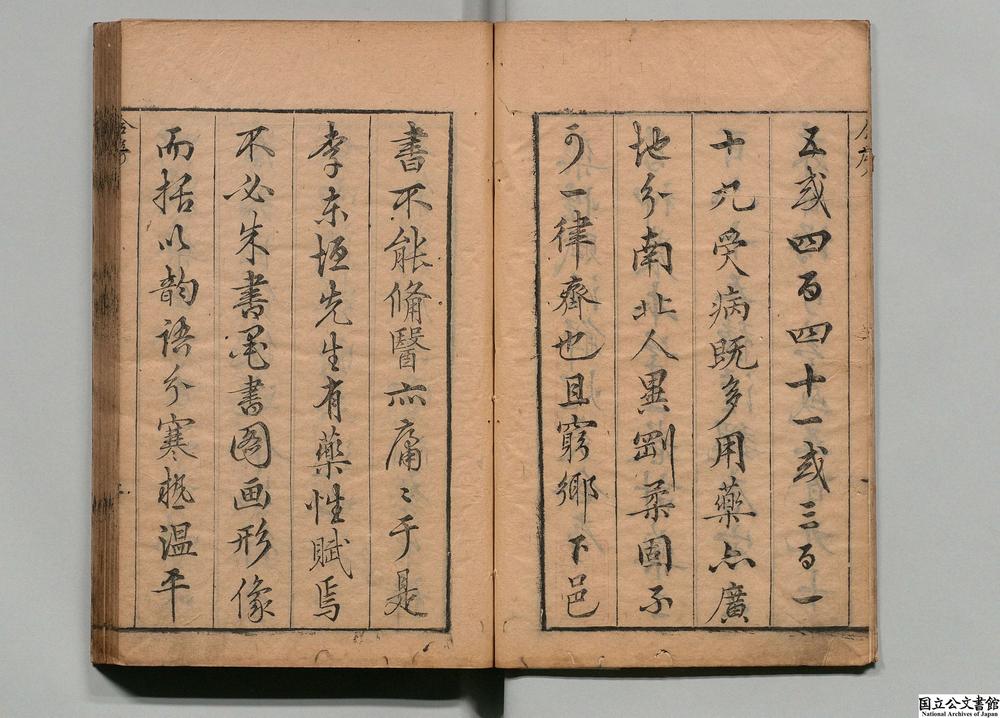 五或四百四十一或三百一
十九受病既多用藥亦廣
地分南北人異剛柔固不
可一律齊也且窮鄉下邑
書不能俻醫亦庸〻于是
李東垣先生有藥性賦焉
不必朱書墨書图画形像
而括以韵語分寒热温平
国立公文書館
National Archives of Japan